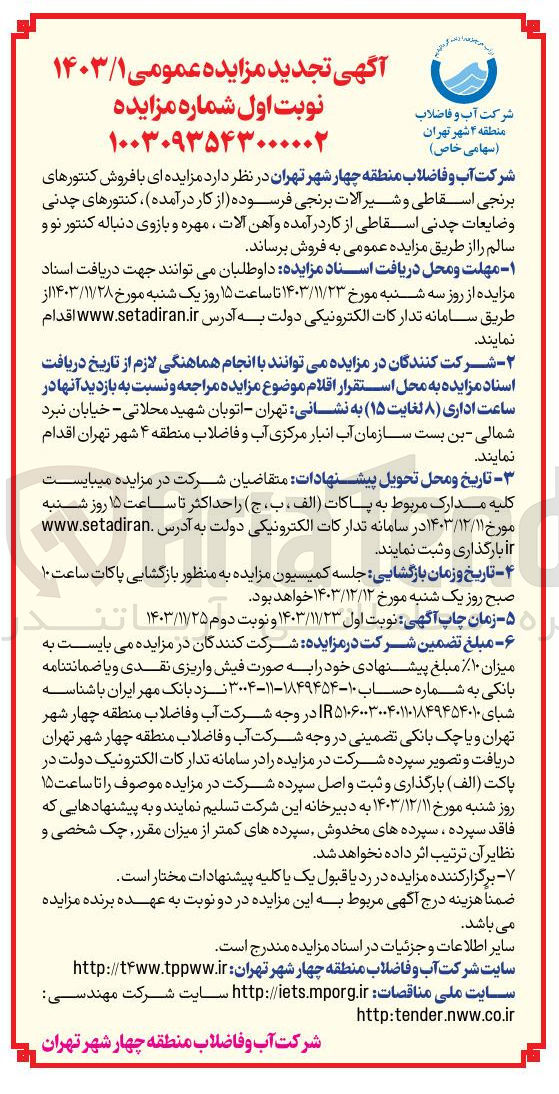 شرکت آب و فاضلاب
منطقه ۴ شهر تهران
(سهامی خاص)
آگهی تجدید مزایده عمومی ۱۴۰۳/۱
نوبت اول شماره مزایده
۱۰۰۳۰۹۳۵۴۳۰۰۰۰۰۲
شرکت آب و فاضلاب منطقه چهار شهر تهران در نظر دارد مزایده ای با فروش کنتورهای
برنجی اسقاطی و شیرآلات برنجی فرسوده (از کار درآمده)، کنتورهای چدنی
وضایعات چدنی اسقاطی از کاردرآمده وآهن آلات ، مهره و بازوی دنباله کنتور نو و
سالم را از طریق مزایده عمومی به فروش برساند.
۱-مهلت ومحل دریافت اسناد مزایده: داوطلبان می توانند جهت دریافت اسناد
مزایده از روز سه شنبه مورخ ۱۴۰۳/۱۱/۲۳ تا ساعت ۱۵ روز یک شنبه مورخ ۱۴۰۳/۱۱/۲۸ از
طریق سامانه تدارکات الکترونیکی دولت به آدرس www.setadiran.ir اقدام
نمایند.
۲-شرکت کنندگان در مزایده می توانند با انجام هماهنگی لازم از تاریخ دریافت
اسناد مزایده به محل استقرار اقلام موضوع مزایده مراجعه و نسبت به بازدید آنها در
ساعت اداری (۸ لغایت ۱۵) به نشانی: تهران -اتوبان شهید محلاتی- خیابان نبرد
شمالی -بن بست سازمان آب انبار مرکزی آب و فاضلاب منطقه ۴ شهر تهران اقدام
نمایند.
۳- تاریخ ومحل تحویل پیشنهادات: متقاضیان شرکت در مزایده میبایست
کلیه مدارک مربوط به پاکات (الف ، ب ، ج) را حداکثر تا ساعت ۱۵ روز شنبه
مورخ ۱۴۰۳/۱۲/۱۱ در سامانه تدارکات الکترونیکی دولت به آدرس www.setadiran.
ir بارگذاری و ثبت نمایند.
۴-تاریخ وزمان بازگشایی: جلسه کمیسیون مزایده به منظور بازگشایی پاکات ساعت ۱۰
صبح روز یک شنبه مورخ ۱۴۰۳/۱۲/۱۲ خواهد بود.
۵-زمان چاپ آگهی: نوبت اول ۱۴۰۳/۱۱/۲۳ و نوبت دوم ۱۴۰۳/۱۱/۲۵
۶- مبلغ تضمین شرکت درمزایده: شرکت کنندگان در مزایده می بایست به
میزان ۱۰٪ مبلغ پیشنهادی خود را به صورت فیش واریزی نقدی و یا ضمانتنامه
بانکی به شماره حساب ۱۰-۱۸۴۹۴۵۴-۱۱-۳۰۰۴ نزد بانک مهر ایران با شناسه
شبای IR۵۱۰۶۰۰۳۰۰۴۰۱۱۰۱۸۴۹۴۵۴۰۱۰ در وجه شرکت آب و فاضلاب منطقه چهار شهر
تهران و یا چک بانکی تضمینی در وجه شرکت آب و فاضلاب منطقه چهار شهر تهران
دریافت و تصویر سپرده شرکت در مزایده را در سامانه تدارکات الکترونیک دولت در
پاکت (الف) بارگذاری و ثبت و اصل سپرده شرکت در مزایده موصوف را تا ساعت ۱۵
روز شنبه مورخ ۱۴۰۳/۱۲/۱۱ به دبیرخانه این شرکت تسلیم نمایند و به پیشنهادهایی که
فاقد سپرده ، سپرده های مخدوش ,سپرده های کمتر از میزان مقرر, چک شخصی و
نظایر آن ترتیب اثر داده نخواهد شد.
۷- برگزارکننده مزایده در رد یا قبول یک یا کلیه پیشنهادات مختار است.
ضمناً هزینه درج آگهی مربوط به این مزایده در دو نوبت به عهده برنده مزایده
می باشد.
سایر اطلاعات و جزئیات در اسناد مزایده مندرج است.
سایت شرکت آب و فاضلاب منطقه چهار شهر تهران: http://t4ww.tppww.ir
سایت ملی مناقصات: http://iets.mporg.ir سایت شرکت مهندسی:
http:tender.nww.co.ir
شرکت آب و فاضلاب منطقه چهار شهر تهران